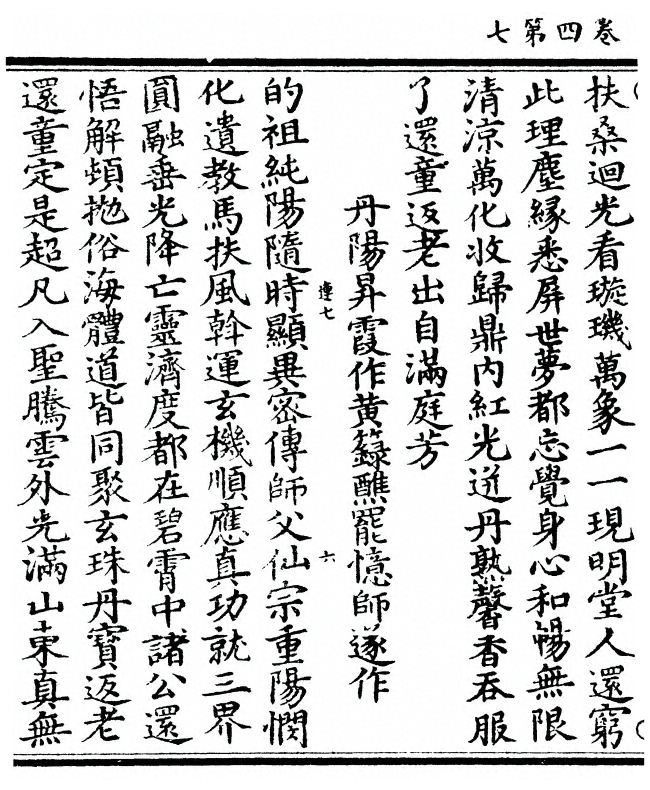 卷四第七
扶桑迴光看璇璣萬象一一現明堂人還窮
此理塵緣悉屏世夢都忘覺身心和暢無限
清涼萬化收歸鼎內紅光迸丹熟馨香吞服
了還童返老出自滿庭芳
丹陽昇霞作黃籙醮罷憶師遂作
的祖純陽隨時顯異密傳師父仙宗重陽憫
化遺教馬扶風斡運玄機順應真功就三界
圓融垂光降亡靈濟度都在碧霄中諸公還
悟解頓拋俗海體道皆同聚玄珠丹寶返老
還童定是超凡入聖騰雲外光滿山東真無
連七
六